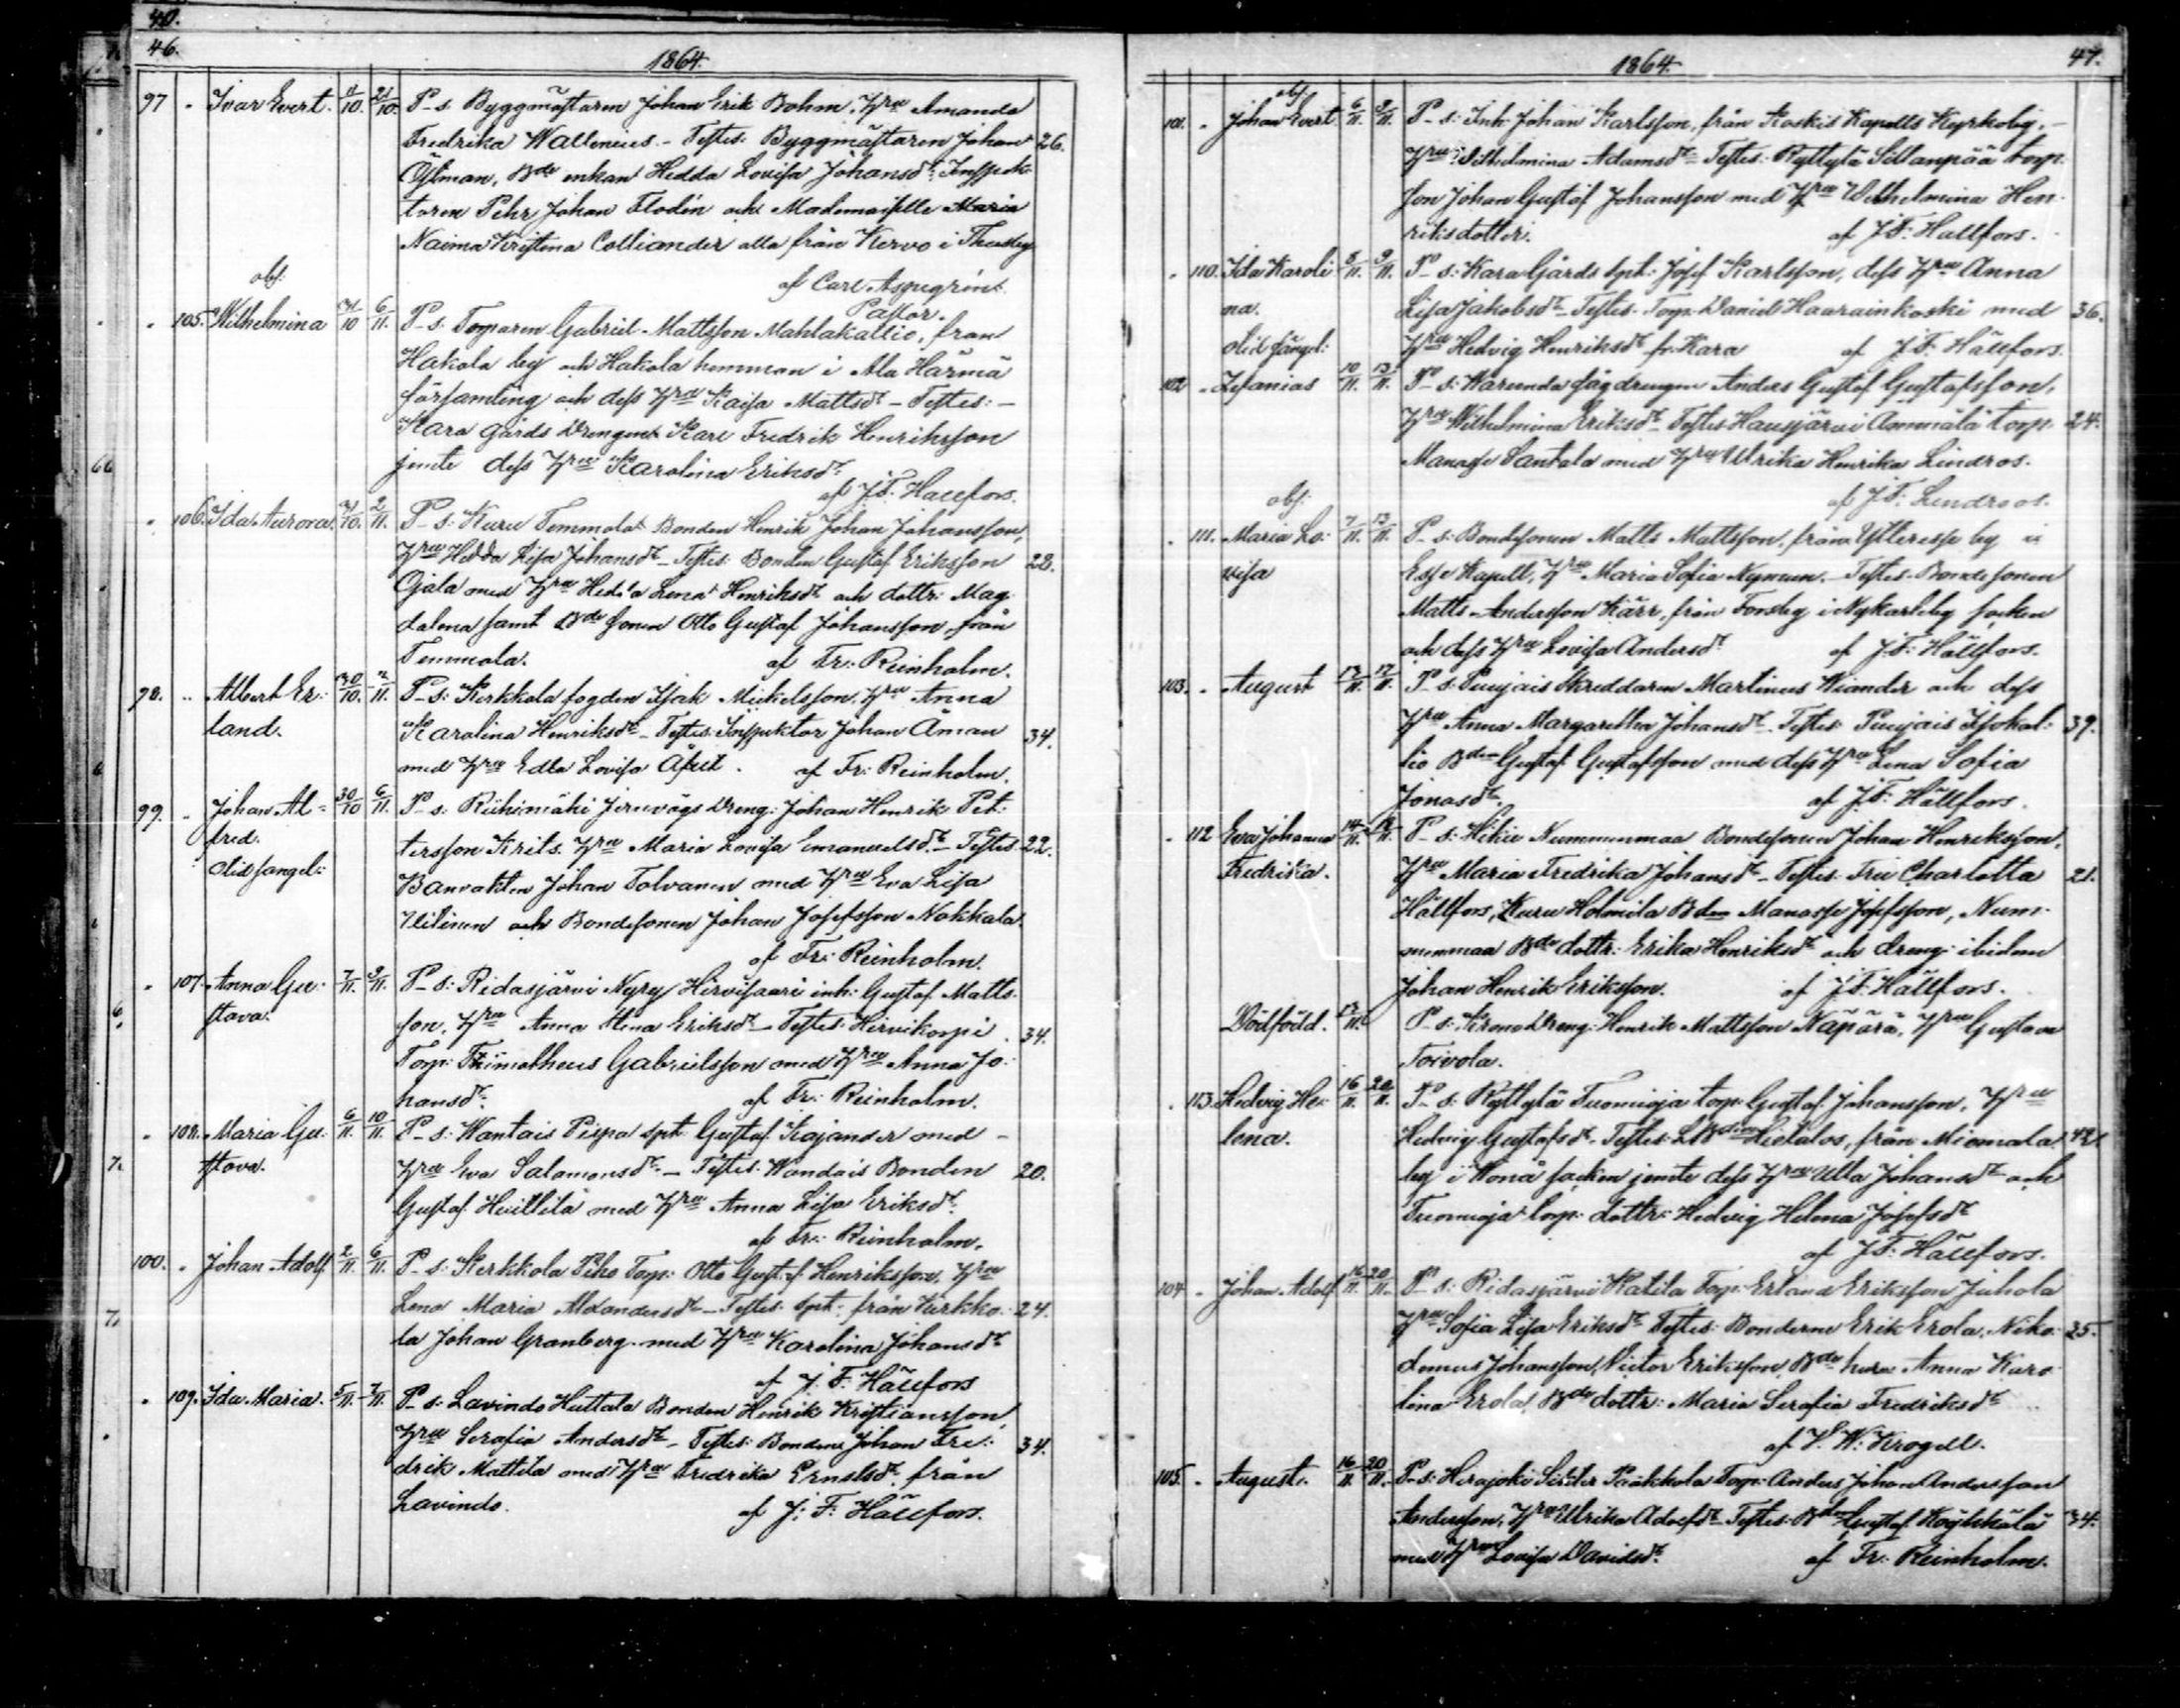 40.
46.
1864.
97 " Ivar Evert. 11/10. 21/10. P_s. Byggmästaren Johan Erik Bohm, Hru Amanda
Fredrika Wallenius. - Testes: Byggmästaren Johan 26.
Öhman, Bde enkan Hedda Lovisa Johansdr. Inspek-
toren Pehr Johan Flodin och Mademoiselle Maria
Naima Kristina Colliander alla från Kervo i Thusby
af Carl Aspegrén.
Pastor.
obs:
" 105. Wilhelmina 31/10 6/11. P_s. Torparen Gabriel Mattsson Mahlakallio, från
Hakola by och Hakola hemman i Ala Härmä
församling och dess Hru Kaisa Mattsdr - Testes: -
Kara gårds drengen Karl Fredrik Henriksson
jemte dess Hru Karolina Eriksdr.
af J.F. Hällfors.
" 106. Ida Aurora. 31/10. 2/11. P_s: Kuru Temmola Bonden Henrik Johan Johansson,
Hru Hedda Lisa Johansdr - Testes: Bonden Gustaf Eriksson 28.
Ojala med Hru Hedda Lena Henriksdr och dottr: Mag-
dalena samt Bde sonen Otto Gustaf Johansson, från
Temmola. af Fr: Reinholm.
98. " Albert Er- 30/10. 2/11. P_s: Kerkkola fogden Isak Mickelsson, Hru Anna
land. Karolina Henriksdr - Testes: Inspektor Johan Åman 34.
med Hru Edla Lovisa af Fr: Reinholm.
99. " Johan Al- 30/10 6/11. P_s. Riihimäki Jernvägs Dreng: Johan Henrik Pet-
fred. tersson Krits. Hru Maria Lovisa Emanuelsdr - Testes 22.
Olidsangel: Banvakten Johan Tolvanen med Hru Eva Lisa
och Bondesonen Johan Josefsson Nokkala.
af Fr: Reinholm.
" 107. Anna Gu- 7/11. 9/11. P_s: Ridasjärvi Nyry Hirvisaari inh: Gustaf Matts-
stava. son, Hru Anna Stina Eriksdr - Testes: Hirvikorpi 34.
Torp: Thimotheus Gabrielsson med Hru Anna Jo-
hansdr. af Fr: Reinholm.
" 108. Maria Gu- 6/11. 10/11. P_s: Wantais Piispa spt: Gustaf Kajander med -
stava. Hru Eva Salomonsdr. - Testes: Wandais Bonden 20.
Gustaf Heikkilä med Hru Anna Lisa Eriksdr.
af Fr: Reinholm.
100. " Johan Adolf 2/11. 6/11. P_s: Kerkkola Piho Torp: Otto Gustaf Henriksson, Hru
Lena Maria Alexandersdr - Testes: spt: från Kerkko- 24.
la Johan Granberg med Hru Karolina Johansdr
af J. F. Hällfors
" 109. Ida Maria. 5/11. 7/11. P_s: Lavinde Huttala Bonden Henrik Kristiansson,
Hru Serafia Andersdr - Testes: Bonden Johan Fre- 34.
drik Mattila med Hru Fredrika Ernstsdr. från
Lavinde. af J. F. Hällfors.
47.
1864.
obs.
101. " Johan Evert 6/11. 9/11. P_s: Inh: Johan Karlsson, från Koskis Kapells Kyrkoby,
Hru Wilhelmina Adamsdr - Testes: Ryttylä Sillanpää torp:
son Johan Gustaf Johansson med Hru Wilhelmina Hen-
riksdotter. af J.F. Hällfors.
" 110. Ida Karoli- 8/11. 9/11. P_s: Kara Gårds spt: Josef Karlsson, dess Hru Anna
na. Lisa Jakobsdr - Testes: Torp: Daniel Haarainkoski med 36.
Olidsångel: Hru Hedvig Henriksdr fr. Kara af J.F. Hällfors.
102 " Zefanias 10/11. 13/11. P_s: Warunda sågdrengen Anders Gustaf Gustafsson,
Hru Wilhelmina Eriksdr - Testes Hausjärvi Ammälä torp: 24.
Manasse Santala med Hru Ulrika Henrika Lindros.
af J.F. Lindroos.
obs:
" 111. Maria Lo- 7/11. 13/11. P_s: Bondesonen Matts Mattsson, från Ytteresse by i
visa Esse Kapell, Hru Maria Sofia Nyman. Testes: Bondesonen
Matts Andersson Kärr, från Forsby i Nykarleby socken
och dess Hru Lovisa Andersdr af J.F. Hällfors.
103. " August 17/11. 17/11. P_s: Puujais Skreddaren Martinus Wiander och dess
Hru Anna Margaretha Johansdr. Testes: Puujais Isokal- 39.
lio Bden Gustaf Gustafsson med dess Hru Lena Sofia
Jonasdr. af J.F. Hällfors.
" 112 Eva Johanna 14/11. P_s: Hikiä Nummenmaa Bondesonen Johan Henriksson,
Fredrika. Hru Maria Fredrika Johansdr - Testes: Fru Charlotta 21.
Hällfors, Kuru Holmila Bden Manasse Josefsson, Num-
menmaa Bde dottr: Erika Henriksdr och dreng: ibidem
Johan Henrik Eriksson. af J.F. Hällfors.
Dödfödd. P_s: Krono Dreng: Henrik Mattsson Näpärä, Hru Gustava
Toivola.
" 113. Hedvig He- 16/11. 20/11. P_s: Ryttylä Tuomioja torp: Gustaf Johansson, Hru
lena. Hedvig Gustafsdr. Testes: Hietalos, från Miemala 42.
by i Wånå socken jemte dess Hru Ulla Johansdr och
Tuomioja torp: dottr: Hedvig Helena Josefsdr
af J.F. Hällfors.
104 " Johan Adolf 16/11 20/11. P_s: Ridasjärvi Katila Torp: Erland Eriksson Juhola
Hru Sofia Lisa Eriksdr Testes: Bonderne Erik Erola, Niko- 25.
demus Johansson, Victor Eriksson, Bde hru: Anna Karo-
lina Erola, Bde dottr: Maria Serafia Fredriksdr
af V. W. Krogell.
105. " August. 16/11. 20/11. P_s: Herajoki Seutter Paakkola Torp: Anders Johan Andersson
Andersson, Hru Ulrika Adolfsdr - Testes: Bden Gustaf 34.
med Hru Lovisa Davidsdr. af Fr: Reinholm.